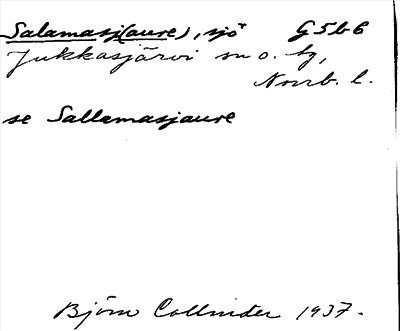 Salamasj(aure), sjö G5b6
Jukkasjärvi sn o. lg,
Norrb. l.
se Sallamasjaure
Björn Collinder 1937.